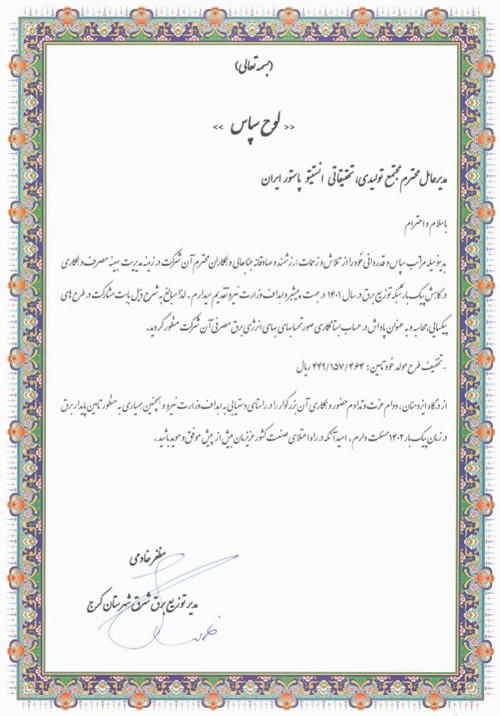 (بسمه تعالی)
<< لوح سپاس >>
مدیرعامل محترم مجتمع تولیدی، تحقیقاتی انستیتو پاستور ایران
باسلام و احترام
بدینوسیله مراتب سپاس و قدردانی خود را از تلاش و زحمات ارزشمند و صادقانه جنابعالی و همکاران محترم آن شرکت در زمینه مدیریت بهینه مصرف و همکاری
در کاهش پیک بار شبکه توزیع برق در سال ۱۴۰۱ در جهت پیشبرد اهداف وزارت نیرو تقدیم میدارم. لذا مبالغ به شرح ذیل بابت مشارکت در طرح های
پیکسایی محاسبه و به عنوان پاداش در حساب بستانکاری صورتحسابهای بهای انرژی برق مصرفی آن شرکت منظور گردید.
- تخفیف طرح مولد خودتامین: ۴۴۹/۱۵۷/۴۶۴ ریال
از درگاه ایزدمنان، دوام عزت و تداوم حضور و همکاری آن بزرگوار را در راستای دستیابی به اهداف وزارت نیرو و همچنین همیاری به منظور تامین پایدار برق
در زمان پیک بار ۱۴۰۲ مسئلت دارم. امید آنکه در راه اعتلای صنعت کشور عزیزمان بیش از پیش موفق و موید باشید.
مظفر خادمی
مدیر توزیع برق شرق شهرستان کرج